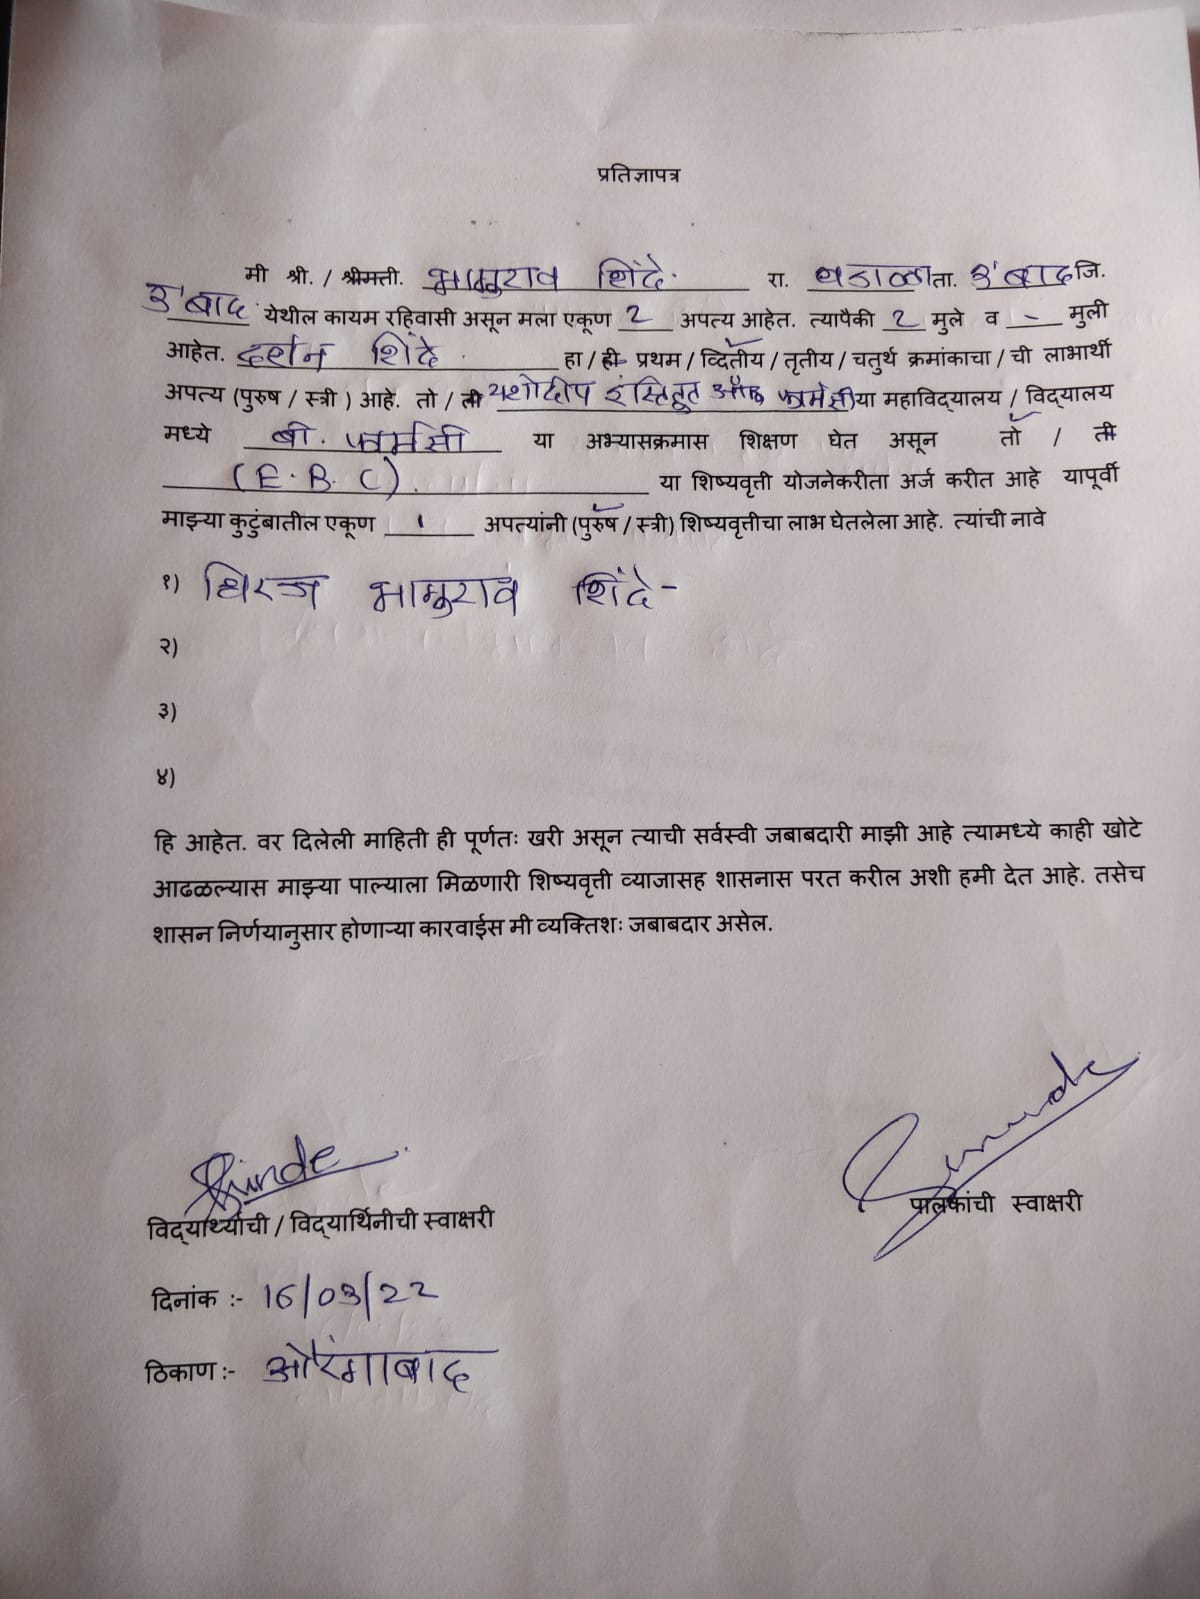 प्रतिज्ञापत्र
मी श्री. / श्रीमती. भानुराव शिंदे. रा. वडाळा ता. उ'बाद जि.
उ'बाद येथील कायम रहिवासी असून मला एकूण 2 अपत्य आहेत. त्यापैकी 2 मुले व - मुली
आहेत. दर्शन शिंदे. हा / ही प्रथम / व्दितीय / तृतीय / चतुर्थ क्रमांकाचा / ची लाभार्थी
अपत्य (पुरुष / स्त्री ) आहे. तो / ती यशोदीप इंस्टिटूत ऑफ फार्मसी या महाविद्यालय / विद्यालय
मध्ये बी. फार्मसी या अभ्यासक्रमास शिक्षण घेत असून तो / ती
(E.B.C). या शिष्यवृत्ती योजनेकरीता अर्ज करीत आहे यापूर्वी
माझ्या कुटुंबातील एकूण १ अपत्यांनी (पुरुष / स्त्री) शिष्यवृत्तीचा लाभ घेतलेला आहे. त्यांची नावे
१) धिरज भानुराव शिंदे -
२)
३)
४)
हि आहेत. वर दिलेली माहिती ही पूर्णतः खरी असून त्याची सर्वस्वी जबाबदारी माझी आहे त्यामध्ये काही खोटे
आढळल्यास माझ्या पाल्याला मिळणारी शिष्यवृत्ती व्याजासह शासनास परत करील अशी हमी देत आहे. तसेच
शासन निर्णयानुसार होणाऱ्या कारवाईस मी व्यक्तिशः जबाबदार असेल.
Shinde
विद्यार्थ्याची / विद्यार्थिनीची स्वाक्षरी
पालकांची स्वाक्षरी
दिनांक :- 16/03/22
ठिकाण :- औरंगाबाद